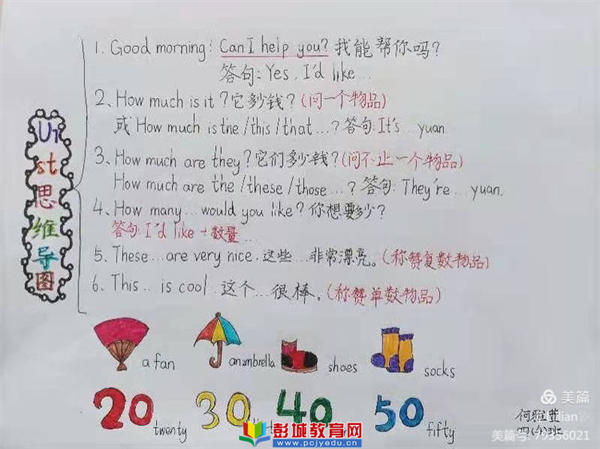 1. Good morning! Can I help you? 我能帮你吗?
答句: Yes, I'd like...
2. How much is it? 它多少钱? (问一个物品)
或 How much is the/this/that...? 答句: It's... yuan.
3. How much are they? 它们多少钱? (问不止一个物品)
How much are the/these/those...? 答句: They're... yuan.
4. How many... would you like? 你想要多少?
答句: I'd like + 数量...
5. These... are very nice. 这些...非常漂亮。(称赞复数物品)
6. This... is cool. 这个...很棒。(称赞单数物品)
思维导图
a fan
an umbrella
shoes
socks
20 twenty
30
40
50 fifty
彭城教育网
www.pcjyedu.cn
美篇
美篇号: 70356021